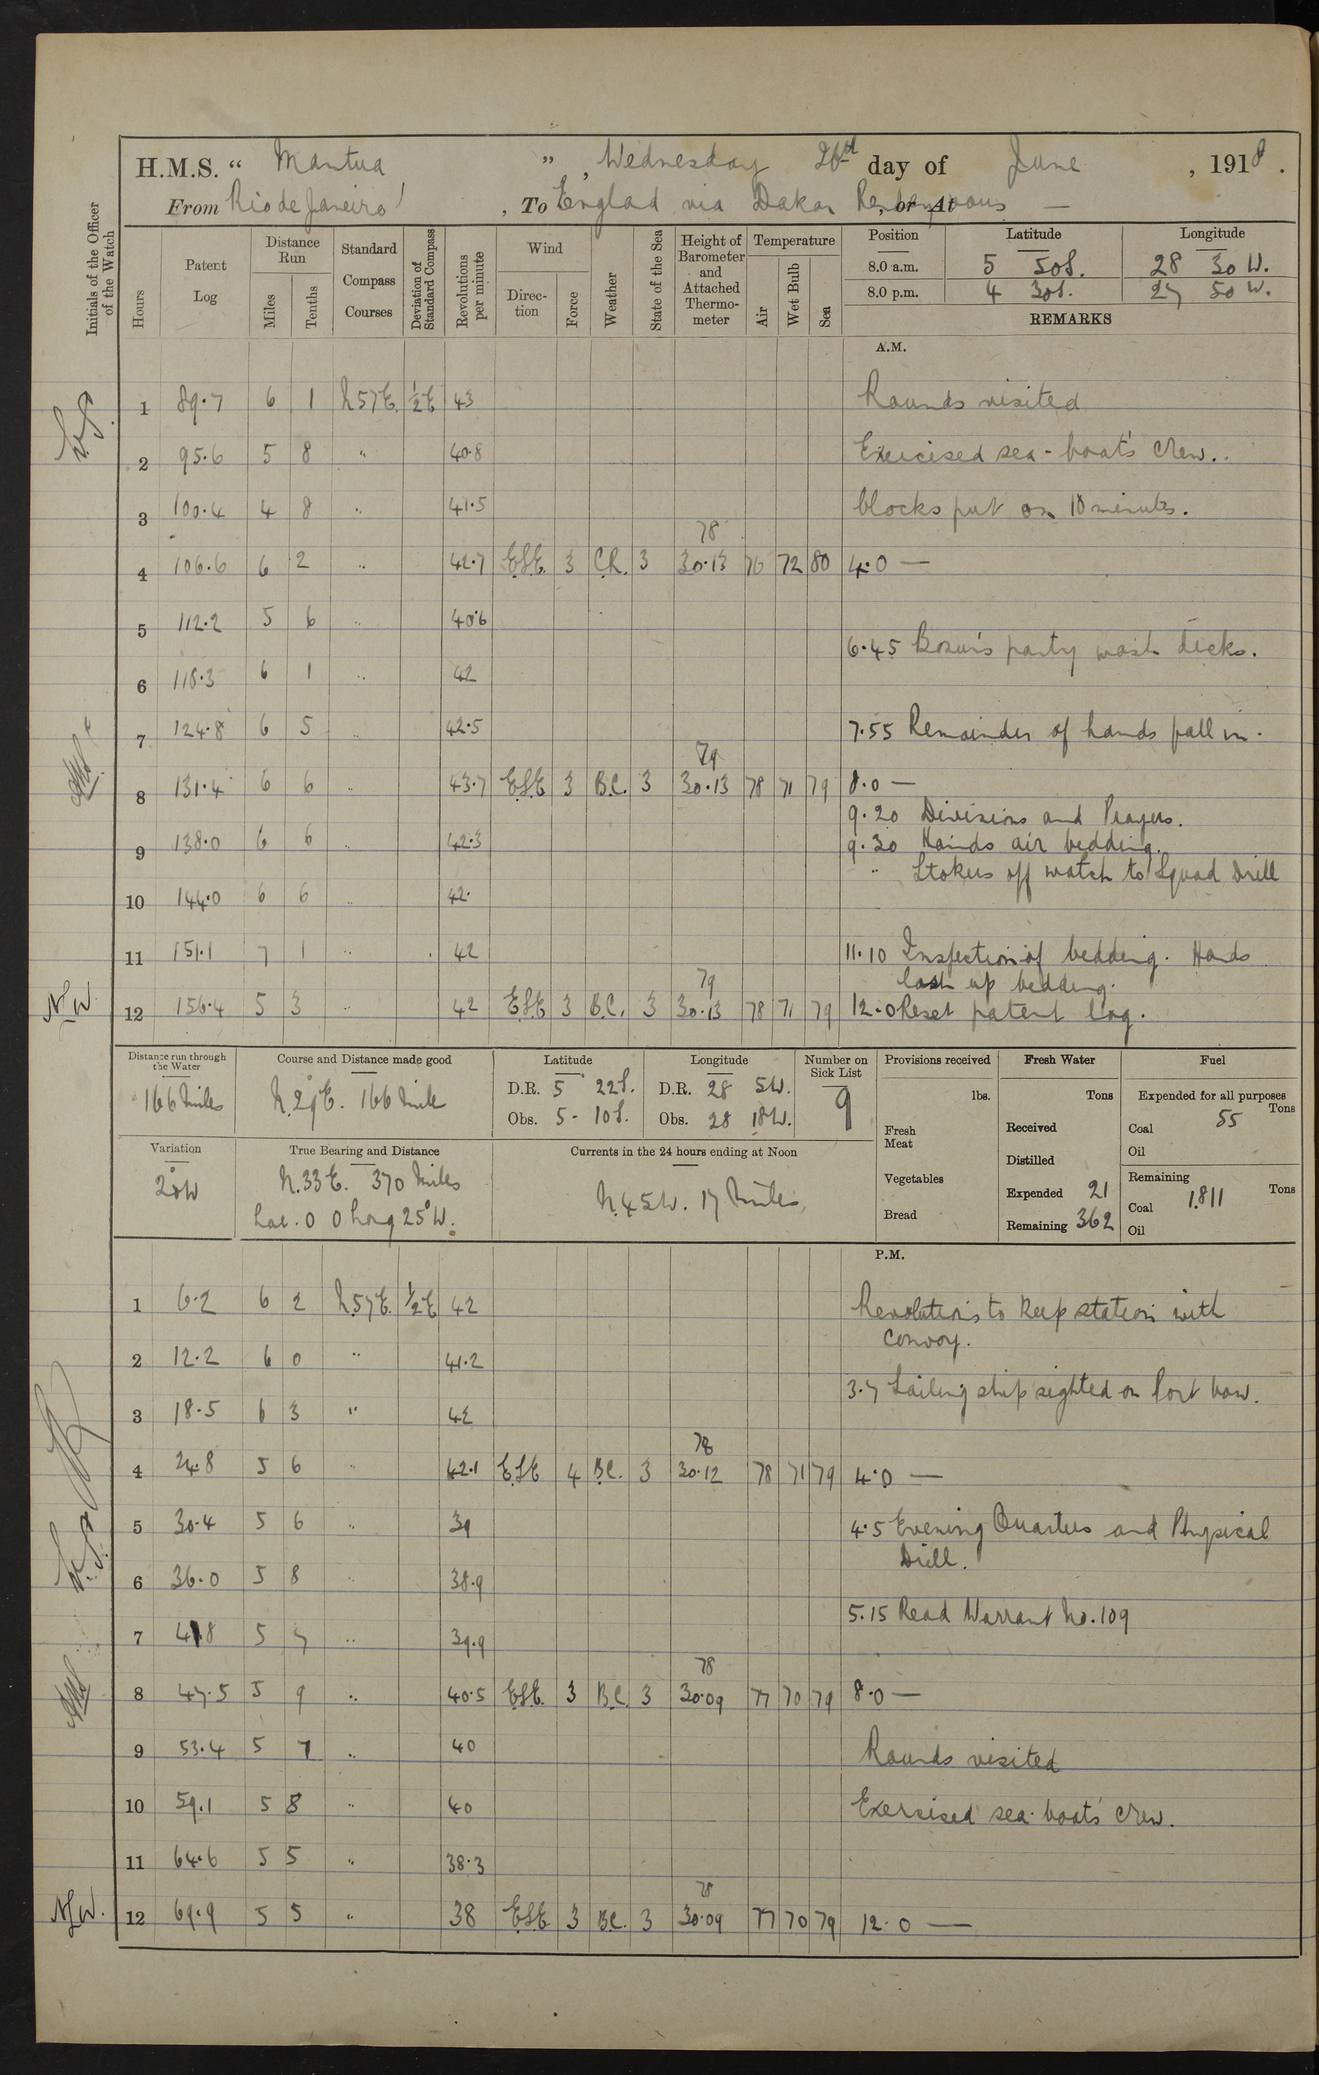 H.M.S. “ Mantua ”, Wednesday 26th day of June, 1918.
From Rio de Janeiro, To Englad via Dakar Rendezvous, or At —
Initials of the Officer of the Watch
Hours
Patent Log
Distance Run
Miles
Tenths
Standard Compass Courses
Deviation of Standard Compass
Revolutions per minute
Wind
Direction
Force
Weather
State of the Sea
Height of Barometer and Attached Thermometer
Temperature
Air
Wet Bulb
Sea
Position Latitude Longitude
8.0 a.m. 5 50S. 28 30 W.
8.0 p.m. 4 30S. 27 50 W.
REMARKS
A.M.
1 89.7 6 1 N57E. ½E 43 Rounds visited
2 95.6 5 8 " 40.8 Exercised sea-boat's crew..
3 100.4 4 8 " 41.5 blocks put on 10 minutes.
78
4 106.6 6 2 " 42.7 ESE. 3 3 30.13 76 72 80 4.0 —
5 112.2 5 6 " 40.6
6.45 Bosun's party wash decks.
6 118.3 6 1 " 42
7 124.8 6 5 " 42.5 7.55 Remainder of hands fall in.
79
8 131.4 6 6 " 43.7 ESE 3 B.C. 3 30.13 78 71 79 8.0 —
9.20 Divisions and Prayers.
9 138.0 6 6 " 42.3 9.30 Hands air bedding.
" Stokers off watch to Squad Drill
10 144.0 6 6 " 42.
11 151.1 7 1 " 42 11.10 Inspection of bedding. Hands
lash up bedding.
79
N.W. 12 156.4 5 3 " 42 ESE 3 B.C. 3 30.13 78 71 79 12.0 Reset patent log.
Distance run through the Water
166 miles
Course and Distance made good
N.29°E. 166 mile
Latitude
D.R. 5 22S.
Obs. 5 - 10S.
Longitude
D.R. 28 5W.
Obs. 28 18W.
Number on Sick List
9
Provisions received
lbs.
Fresh Meat
Vegetables
Bread
Fresh Water
Tons
Received
Distilled
Expended 21
Remaining 362
Fuel
Expended for all purposes
Tons
Coal 55
Oil
Remaining
Tons
Coal 1,811
Oil
Variation
20W
True Bearing and Distance
N.33E. 370 Miles
Lat. 0 0 Long 25°W.
Currents in the 24 hours ending at Noon
N.45W. 17 Miles,
P.M.
1 6.2 6 2 N.57E. ½E 42 Revolutions to keep station with
convoy.
2 12.2 6 0 " 41.2
3.7 Sailing ship sighted on Port bow.
3 18.5 6 3 " 42
78
4 24.8 5 6 " 42.1 ESE 4 B.C. 3 30.12 78 71 79 4.0 —
5 30.4 5 6 " 39 4.5 Evening Quarters and Physical
Drill.
6 36.0 5 8 " 38.9
5.15 Read Warrant No. 109
7 41.8 5 7 " 39.9
78
8 47.5 5 9 " 40.5 ESE. 3 B.C. 3 30.09 77 70 79 8.0 —
9 53.4 5 7 " 40 Rounds visited
10 59.1 5 8 " 40 Exercised sea boats' crew.
11 64.6 5 5 " 38.3
78
N.W. 12 69.9 5 5 " 38 ESE 3 B.C. 3 30.09 77 70 79 12.0 —